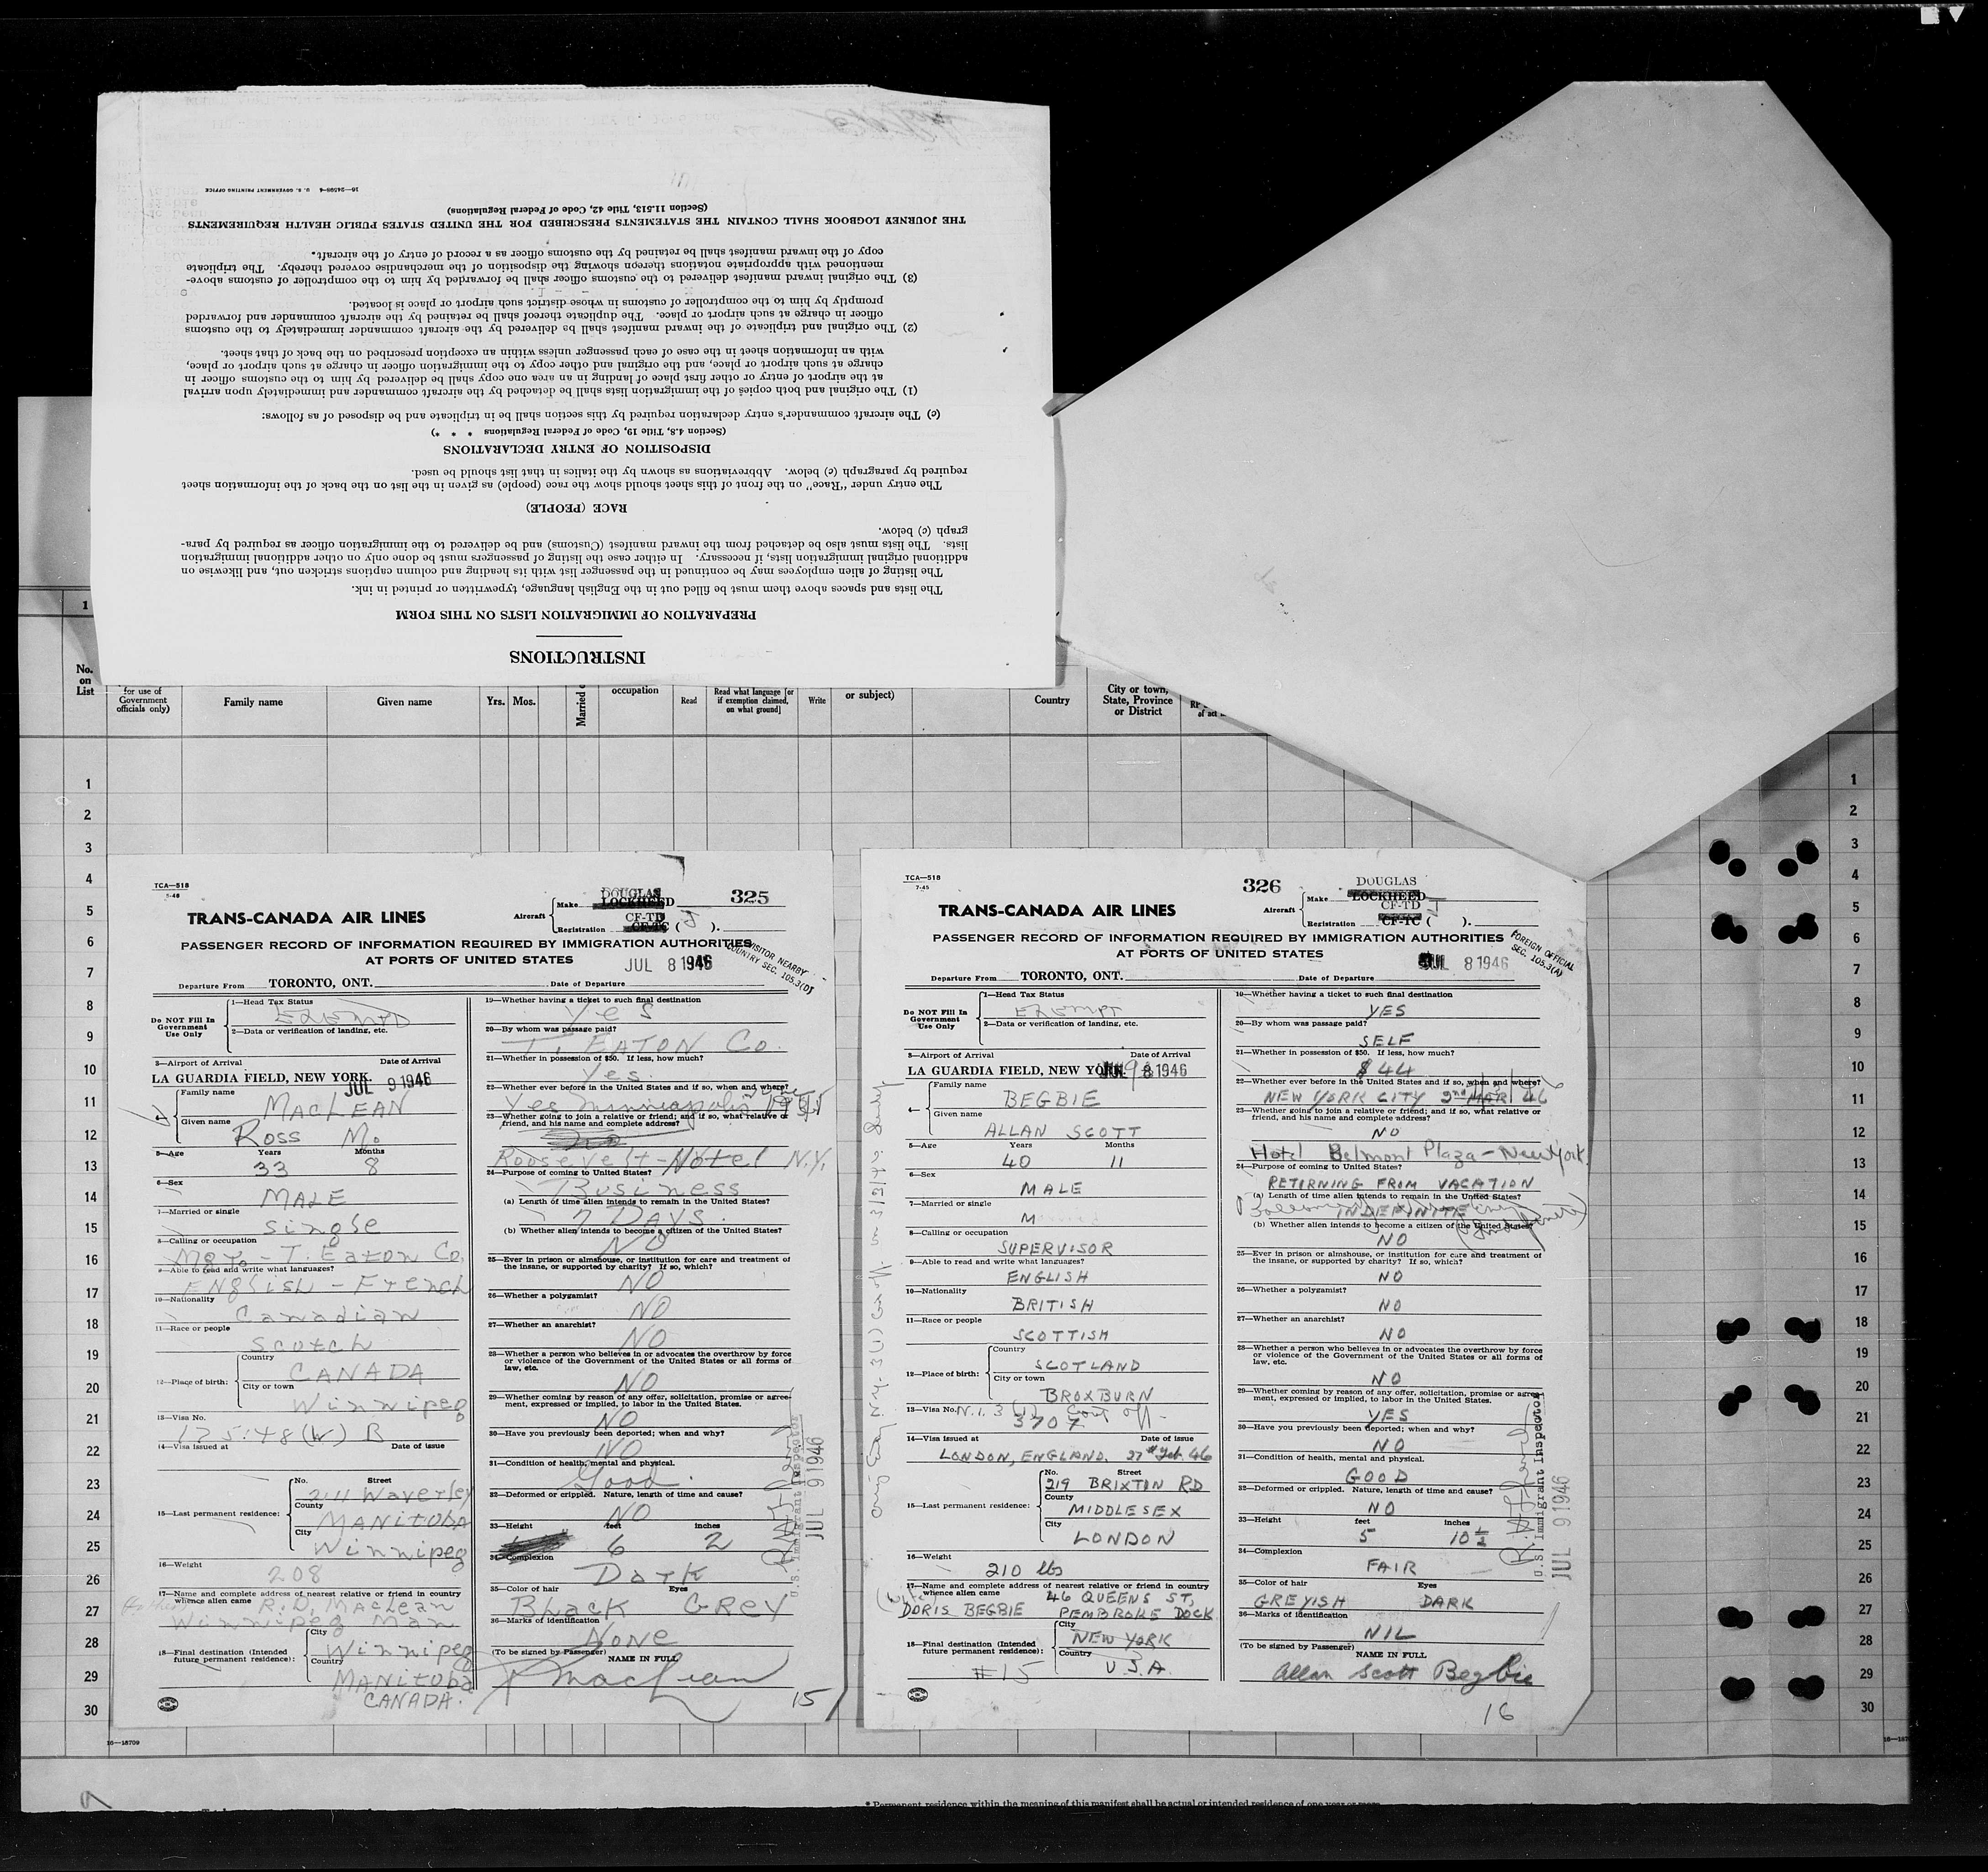 INSTRUCTIONS
PREPARATION OF IMMIGRATION LISTS ON THIS FORM
The lists and spaces above them must be filled out in the English language, typewritten or printed in ink.
The listing of alien employees may be continued in the passenger list with its heading and column captions stricken out, and likewise on
additional original immigration lists, if necessary. In either case the listing of passengers must be done only on other additional immigration
lists. The lists must also be detached from the inward manifest (Customs) and be delivered to the immigration officer as required by para-
graph (c) below.
RACE (PEOPLE)
The entry under "Race" on the front of this sheet should show the race (people) as given in the list on the back of the information sheet
required by paragraph (c) below. Abbreviations as shown by the italics in that list should be used.
DISPOSITION OF ENTRY DECLARATIONS
(Section 4.8, Title 19, Code of Federal Regulations * * *)
(c) The aircraft commander's entry declaration required by this section shall be in triplicate and be disposed of as follows:
(1) The original and both copies of the immigration lists shall be detached by the aircraft commander and immediately upon arrival
at the airport of entry or other first place of landing in an area one copy shall be delivered by him to the customs officer in
charge at such airport or place, and the original and other copy to the immigration officer in charge at such airport or place,
with an information sheet in the case of each passenger unless within an exception prescribed on the back of that sheet.
(2) The original and triplicate of the inward manifest shall be delivered by the aircraft commander immediately to the customs
officer in charge at such airport or place. The duplicate thereof shall be retained by the aircraft commander and forwarded
promptly by him to the comptroller of customs in whose district such airport or place is located.
(3) The original inward manifest delivered to the customs officer shall be forwarded by him to the comptroller of customs above-
mentioned with appropriate notations thereon showing the disposition of the merchandise covered thereby. The triplicate
copy of the inward manifest shall be retained by the customs officer as a record of entry of the aircraft.
THE JOURNEY LOGBOOK SHALL CONTAIN THE STATEMENTS PRESCRIBED FOR THE UNITED STATES PUBLIC HEALTH REQUIREMENTS
(Section 11.513, Title 42, Code of Federal Regulations)
16—24598-4 U. S. GOVERNMENT PRINTING OFFICE
1
No. on List
for use of Government officials only)
Family name
Given name
Yrs. Mos.
Married
occupation
Read
Read what language [or if exemption claimed, on what ground]
Write
or subject)
Country
City or town, State, Province or District
1 1
2 2
3 3
4 4
5 5
6 6
7 7
8 8
9 9
10 10
11 11
12 12
13 13
14 14
15 15
16 16
17 17
18 18
19 19
20 20
21 21
22 22
23 23
24 24
25 25
26 26
27 27
28 28
29 29
30 30
TCA—518
DOUGLAS
325
Aircraft Make LOCKHEED
TRANS-CANADA AIR LINES
CF-TD J
Registration CF-TC ( ).
PASSENGER RECORD OF INFORMATION REQUIRED BY IMMIGRATION AUTHORITIES
AT PORTS OF UNITED STATES
JUL 8 1946
VISITOR NEARBY
COUNTRY SEC. 105.3(D)
Departure From TORONTO, ONT. Date of Departure
Do NOT Fill In Government Use Only
1—Head Tax Status
2—Data or verification of landing, etc.
3—Airport of Arrival Date of Arrival
LA GUARDIA FIELD, NEW YORK. JUL 9 1946
4— Family name MACLEAN
Given name Ross M.
5—Age Years 33 Months 8
6—Sex MALE
7—Married or single Single
8—Calling or occupation Mgr. - T. Eaton Co.
9—Able to read and write what languages?
ENGlish - French
10—Nationality Canadian
11—Race or people Scotch
12—Place of birth: Country CANADA
City or town Winnipeg
13—Visa No. 175:48 (W) B
14—Visa issued at Date of issue
15—Last permanent residence: No. Street 211 Waverley
County MANitoba
City Winnipeg
16—Weight 208
17—Name and complete address of nearest relative or friend in country whence alien came
R.D. MacLean
Winnipeg Man
18—Final destination (Intended future permanent residence): City Winnipeg
Country MANitoba
CANADA.
19—Whether having a ticket to such final destination
Yes
20—By whom was passage paid?
T. EATON Co.
21—Whether in possession of $50. If less, how much?
Yes.
22—Whether ever before in the United States and if so, when and where?
Yes Minneapolis
23—Whether going to join a relative or friend; and if so, what relative or friend, and his name and complete address?
Roosevelt - Hotel N.Y.
24—Purpose of coming to United States?
Business
(a) Length of time alien intends to remain in the United States?
7 DAYS.
(b) Whether alien intends to become a citizen of the United States?
NO
25—Ever in prison or almshouse, or institution for care and treatment of the insane, or supported by charity? If so, which?
NO
26—Whether a polygamist?
NO
27—Whether an anarchist?
NO
28—Whether a person who believes in or advocates the overthrow by force or violence of the Government of the United States or all forms of law, etc.
NO
29—Whether coming by reason of any offer, solicitation, promise or agreement, expressed or implied, to labor in the United States.
NO
30—Have you previously been deported; when and why?
NO
31—Condition of health, mental and physical.
Good.
32—Deformed or crippled. Nature, length of time and cause?
NO
33—Height feet 6 inches 2
34—Complexion Dark
35—Color of hair Black Eyes Grey
36—Marks of identification
None
(To be signed by Passenger) NAME IN FULL
MacLean
15
U.S. Immigrant Inspector
JUL 9 1946
16—18709
TCA—518
7-45
326
DOUGLAS
Aircraft Make LOCKHEED
CF-TD J
Registration CF-TC ( ).
TRANS-CANADA AIR LINES
PASSENGER RECORD OF INFORMATION REQUIRED BY IMMIGRATION AUTHORITIES
AT PORTS OF UNITED STATES
JUL 8 1946
FOREIGN OFFICIAL
SEC. 105.3(A)
Departure From TORONTO, ONT. Date of Departure
Do NOT Fill In Government Use Only
1—Head Tax Status
Exempt
2—Data or verification of landing, etc.
3—Airport of Arrival Date of Arrival
LA GUARDIA FIELD, NEW YORK. JUL 9 8 1946
4— Family name BEGBIE
Given name ALLAN SCOTT
5—Age Years 40 Months 11
6—Sex MALE
7—Married or single M
8—Calling or occupation SUPERVISOR
9—Able to read and write what languages?
ENGLISH
10—Nationality BRITISH
11—Race or people SCOTTISH
12—Place of birth: Country SCOTLAND
City or town BROXBURN
13—Visa No. N.I. 3 (1) Govt off -
3707
14—Visa issued at Date of issue
LONDON, ENGLAND. 27th Feb. 46
15—Last permanent residence: No. Street 219 BRIXTON RD
County MIDDLESEX
City LONDON
16—Weight 210 lbs
17—Name and complete address of nearest relative or friend in country whence alien came
46 QUEENS ST,
DORIS BEGBIE PEMBROKE DOCK
18—Final destination (Intended future permanent residence): City NEW YORK
Country U.S.A.
#15
19—Whether having a ticket to such final destination
YES
20—By whom was passage paid?
SELF
21—Whether in possession of $50. If less, how much?
$44
22—Whether ever before in the United States and if so, when and where?
NEW YORK CITY 2nd MAR 46
23—Whether going to join a relative or friend; and if so, what relative or friend, and his name and complete address?
NO
Hotel Belmont Plaza - New York.
24—Purpose of coming to United States?
RETURNING FROM VACATION
(a) Length of time alien intends to remain in the United States?
INDEFINITE
(b) Whether alien intends to become a citizen of the United States?
NO
25—Ever in prison or almshouse, or institution for care and treatment of the insane, or supported by charity? If so, which?
NO
26—Whether a polygamist?
NO
27—Whether an anarchist?
NO
28—Whether a person who believes in or advocates the overthrow by force or violence of the Government of the United States or all forms of law, etc.
NO
29—Whether coming by reason of any offer, solicitation, promise or agreement, expressed or implied, to labor in the United States.
YES
30—Have you previously been deported; when and why?
NO
31—Condition of health, mental and physical.
GOOD
32—Deformed or crippled. Nature, length of time and cause?
NO
33—Height feet 5 inches 10 1/2
34—Complexion FAIR
35—Color of hair GREYISH Eyes DARK
36—Marks of identification
NIL
(To be signed by Passenger) NAME IN FULL
Allan Scott Begbie
16
U.S. Immigrant Inspector
JUL 9 1946
* Permanent residence within the meaning of this manifest shall be actual or intended residence of one year or more.